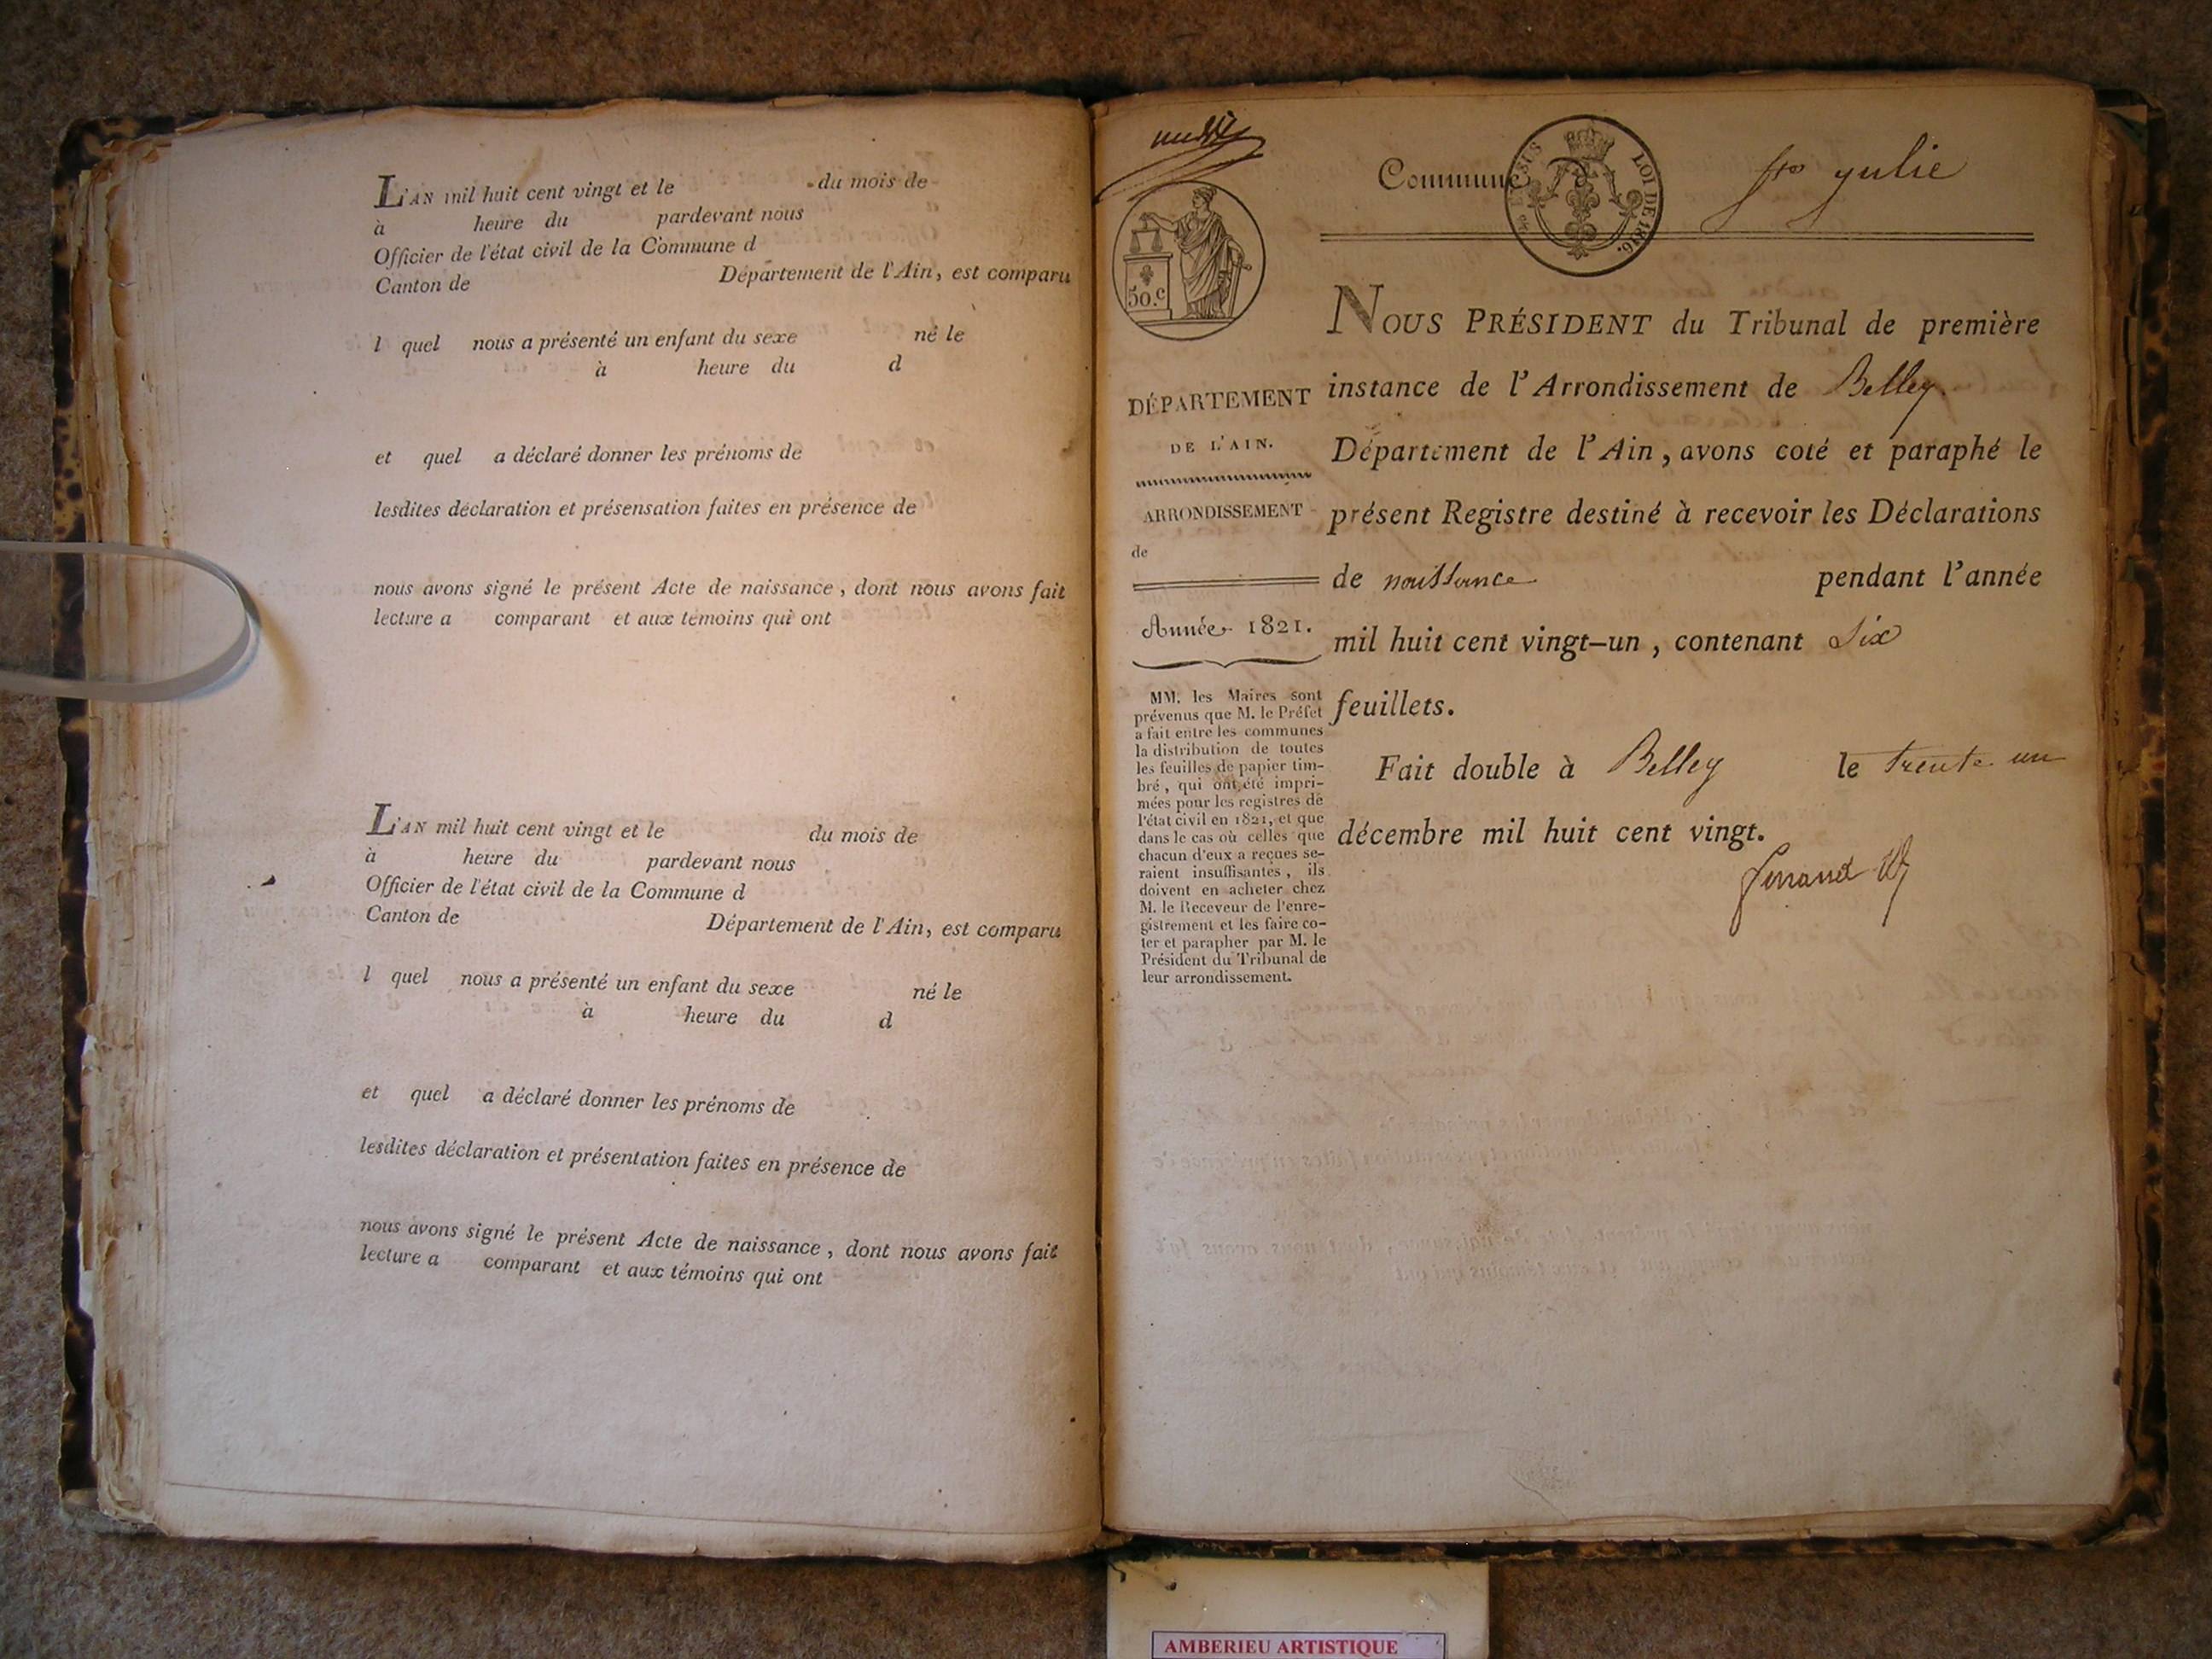 L'AN mil huit cent vingt et le du mois de
à heure du pardevant nous
Officier de l'état civil de la Commune d
Canton de Département de l'Ain, est comparu
l quel nous a présenté un enfant du sexe né le
à heure du d
et quel a déclaré donner les prénoms de
lesdites déclaration et présensation faites en présence de
nous avons signé le présent Acte de naissance, dont nous avons fait
lecture a comparant et aux témoins qui ont
L'AN mil huit cent vingt et le du mois de
à heure du pardevant nous
Officier de l'état civil de la Commune d
Canton de Département de l'Ain, est comparu
l quel nous a présenté un enfant du sexe né le
à heure du d
et quel a déclaré donner les prénoms de
lesdites déclaration et présentation faites en présence de
nous avons signé le présent Acte de naissance, dont nous avons fait
lecture a comparant et aux témoins qui ont
Commune Ste yulie
LOI DE 1816.
50.c
DÉPARTEMENT
DE L'AIN.
ARRONDISSEMENT
de
Année 1821.
MM. les Maires sont
prévenus que M. le Préfet
a fait entre les communes
la distribution de toutes
les feuilles de papier tim-
bré, qui ont été impri-
mées pour les registres de
l'état civil en 1821, et que
dans le cas où celles que
chacun d'eux a reçues se-
raient insuffisantes, ils
doivent en acheter chez
M. le Receveur de l'enre-
gistrement et les faire co-
ter et parapher par M. le
Président du Tribunal de
leur arrondissement.
NOUS PRÉSIDENT du Tribunal de première
instance de l'Arrondissement de Belley
Département de l'Ain, avons coté et paraphé le
présent Registre destiné à recevoir les Déclarations
de naissance pendant l'année
mil huit cent vingt-un, contenant Six
feuillets.
Fait double à Belley le trente un
décembre mil huit cent vingt.
AMBERIEU ARTISTIQUE